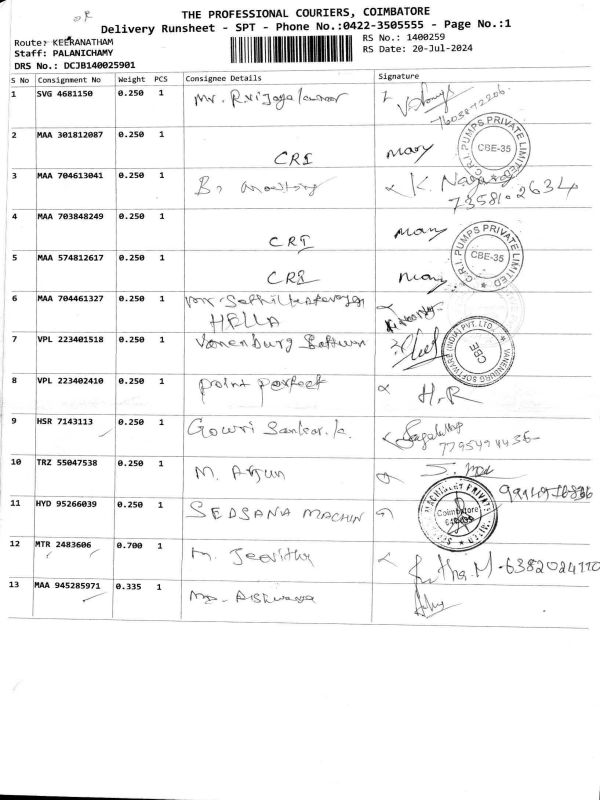 THE PROFESSIONAL COURIERS, COIMBATORE
Delivery Runsheet - SPT - Phone No.:0422-3505555 - Page No.:1
Route: KEERANATHAM
RS No.: 1400259
Staff: PALANICHAMY
RS Date: 20-Jul-2024
DRS No.: DCJB140025901
S No Consignment No Weight PCS Consignee Details Signature
1 SVG 4681150 0.250 1 Mr. R.Vijayakumar
2 MAA 301812087 0.250 1 CRI Mary
C.R.I. PUMPS PRIVATE LIMITED CBE-35
3 MAA 704613041 0.250 1 K.
73581-2634
4 MAA 703848249 0.250 1 CRI Mary
C.R.I. PUMPS PRIVATE LIMITED CBE-35
5 MAA 574812617 0.250 1 CRI Mary
6 MAA 704461327 0.250 1 Mr
HELLA
7 VPL 223401518 0.250 1 Vanenburg Software
VANENBURG SOFTWARE (INDIA) PVT. LTD. CBE
8 VPL 223402410 0.250 1 point perfect H.R
9 HSR 7143113 0.250 1 Gowri Sankar.k.
10 TRZ 55047538 0.250 1 M. Arjun
11 HYD 95266039 0.250 1 SEDSANA MACHIN
Coimbatore
12 MTR 2483606 0.700 1 M. Jeevitha
M-6382024110
13 MAA 945285971 0.335 1